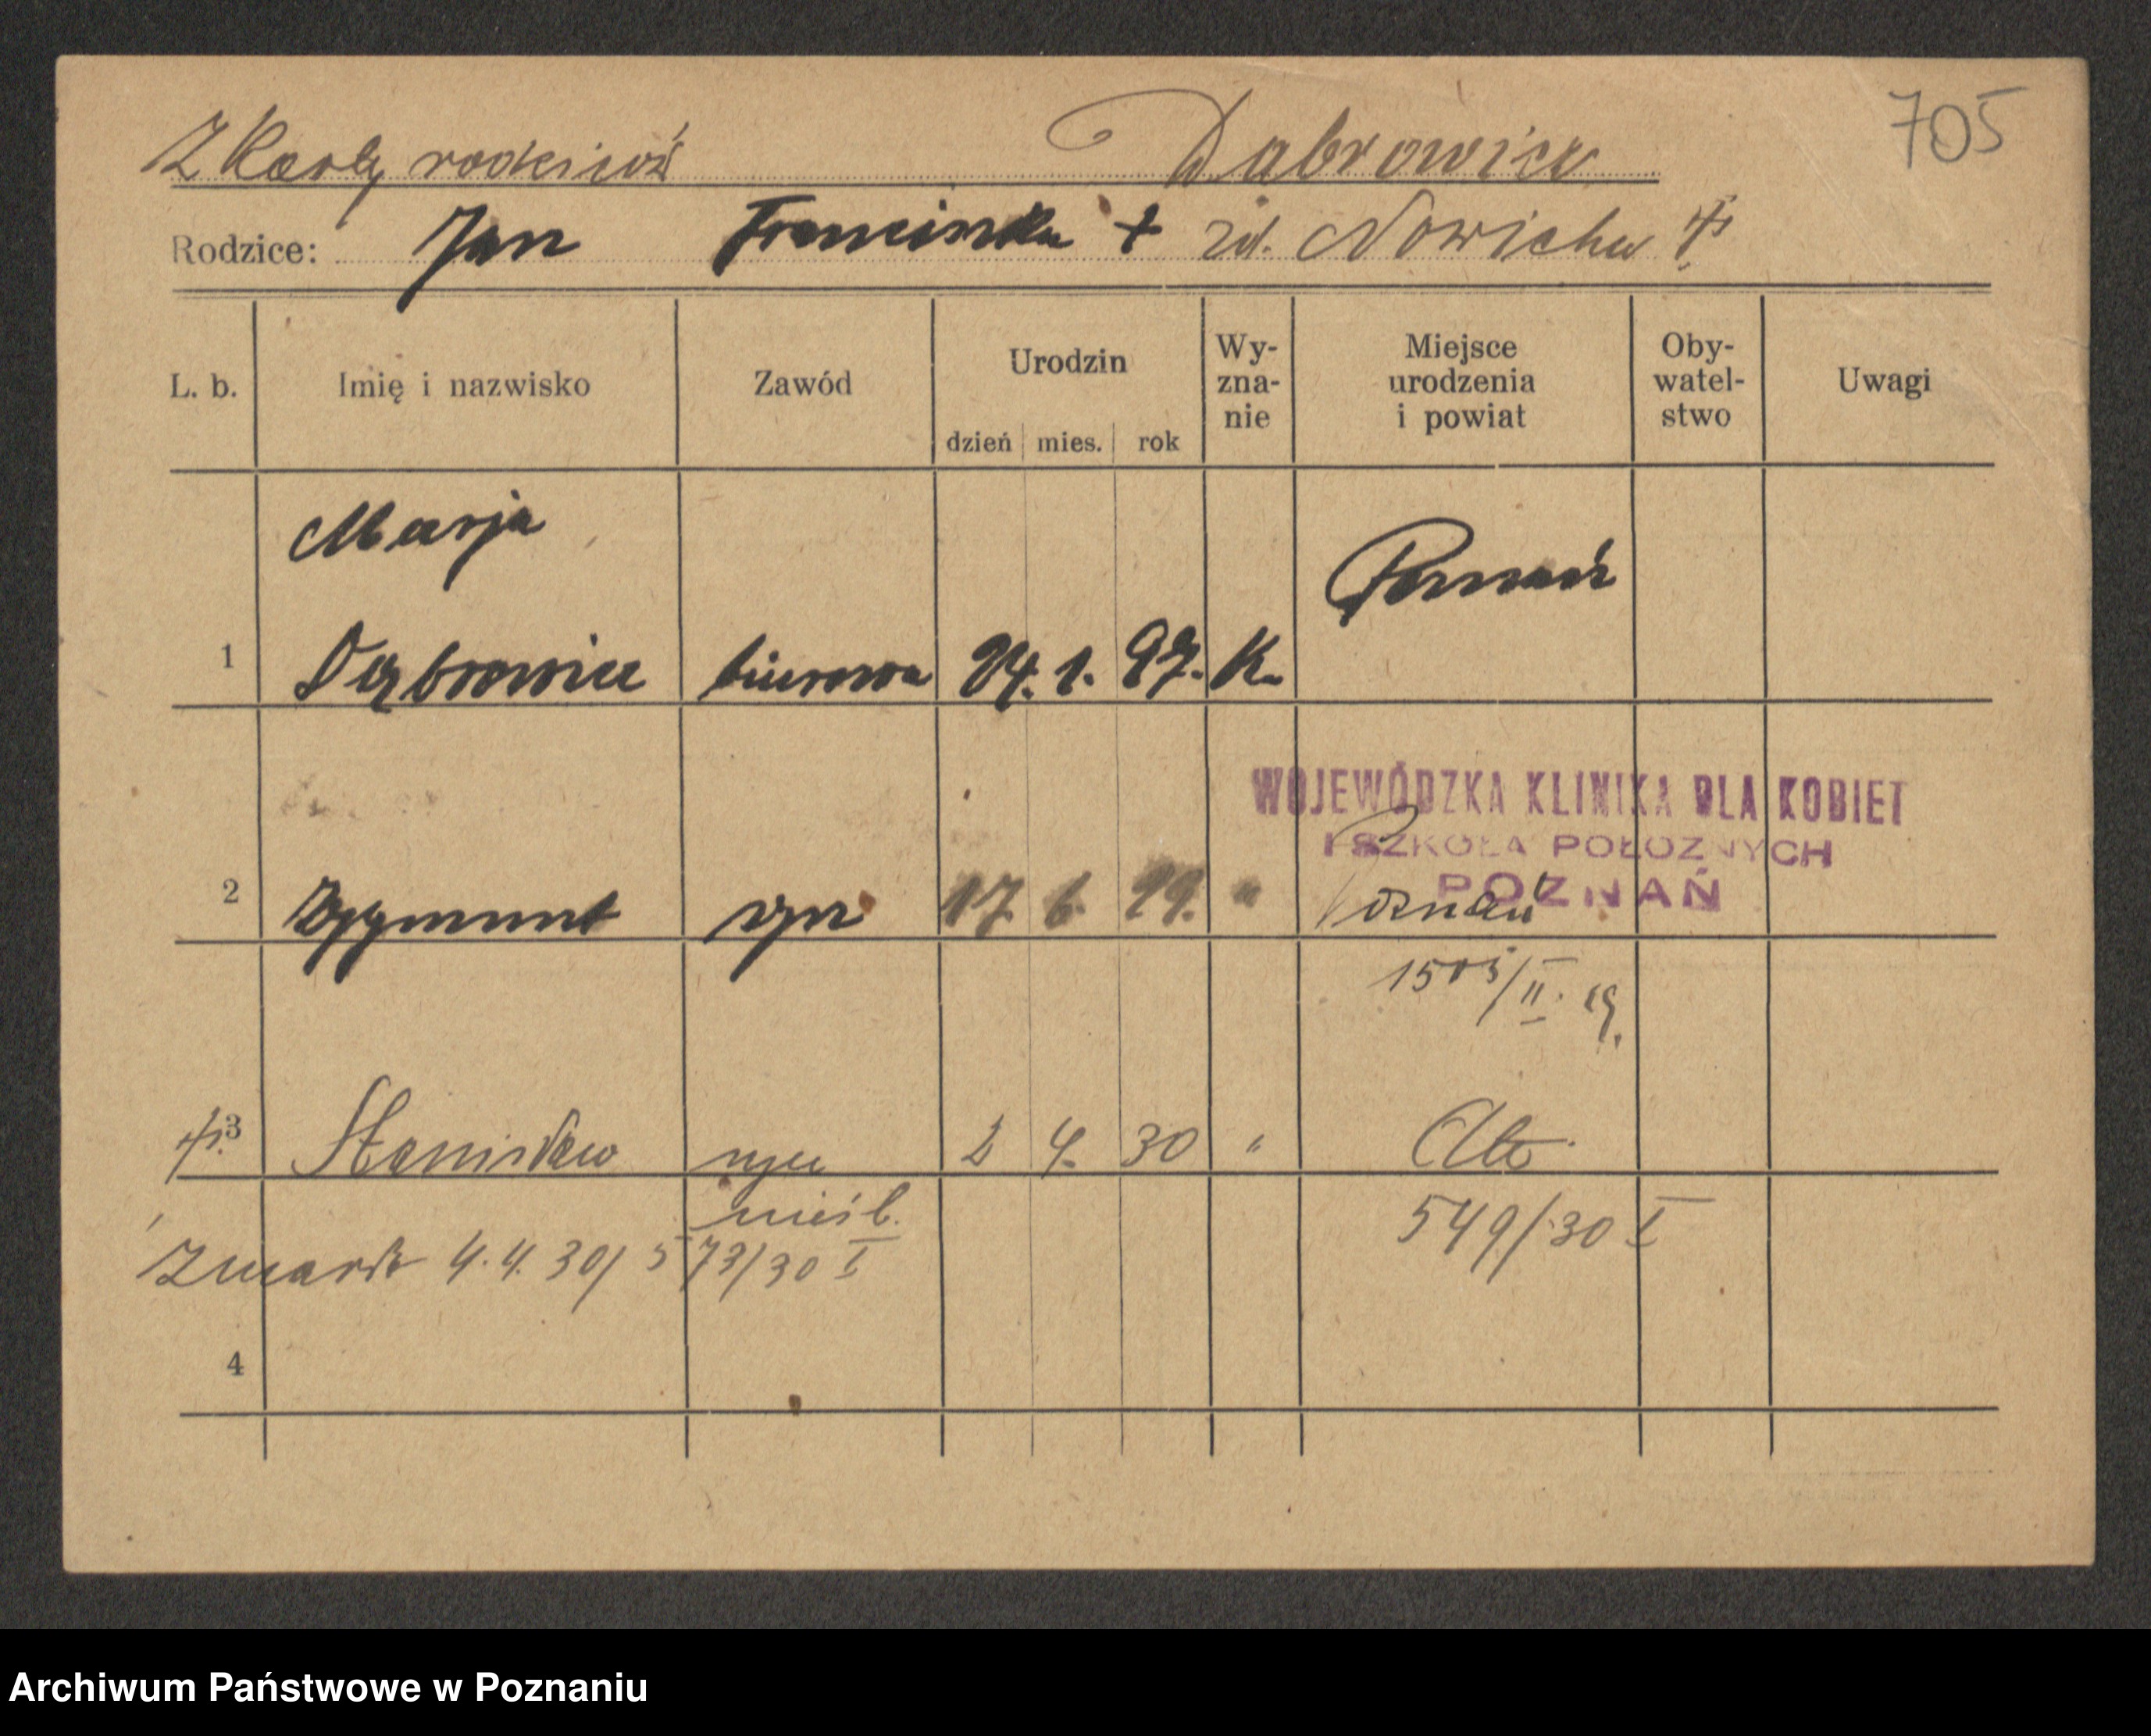 705
Z Karty rodziców Dąbrowicz
Rodzice: Jan Franciszka + zd. Nowicka
L. b. Imię i nazwisko Zawód Urodzin dzień mies. rok Wy-zna-nie Miejsce urodzenia i powiat Oby-watel-stwo Uwagi
Marja Poznań
1 Dąbrowicz biurowa 24. 1. 97. K.
WOJEWÓDZKA KLINIKA DLA KOBIET
I SZKOŁA POŁOŻNYCH
POZNAŃ
2 Zygmunt syn 17. 6. 29. " Poznań
3 Stanisław syn 2 4. 30 "
nieśl. 549/30 I
Zmarł 4.4.30/ 573/30 I
4
Archiwum Państwowe w Poznaniu